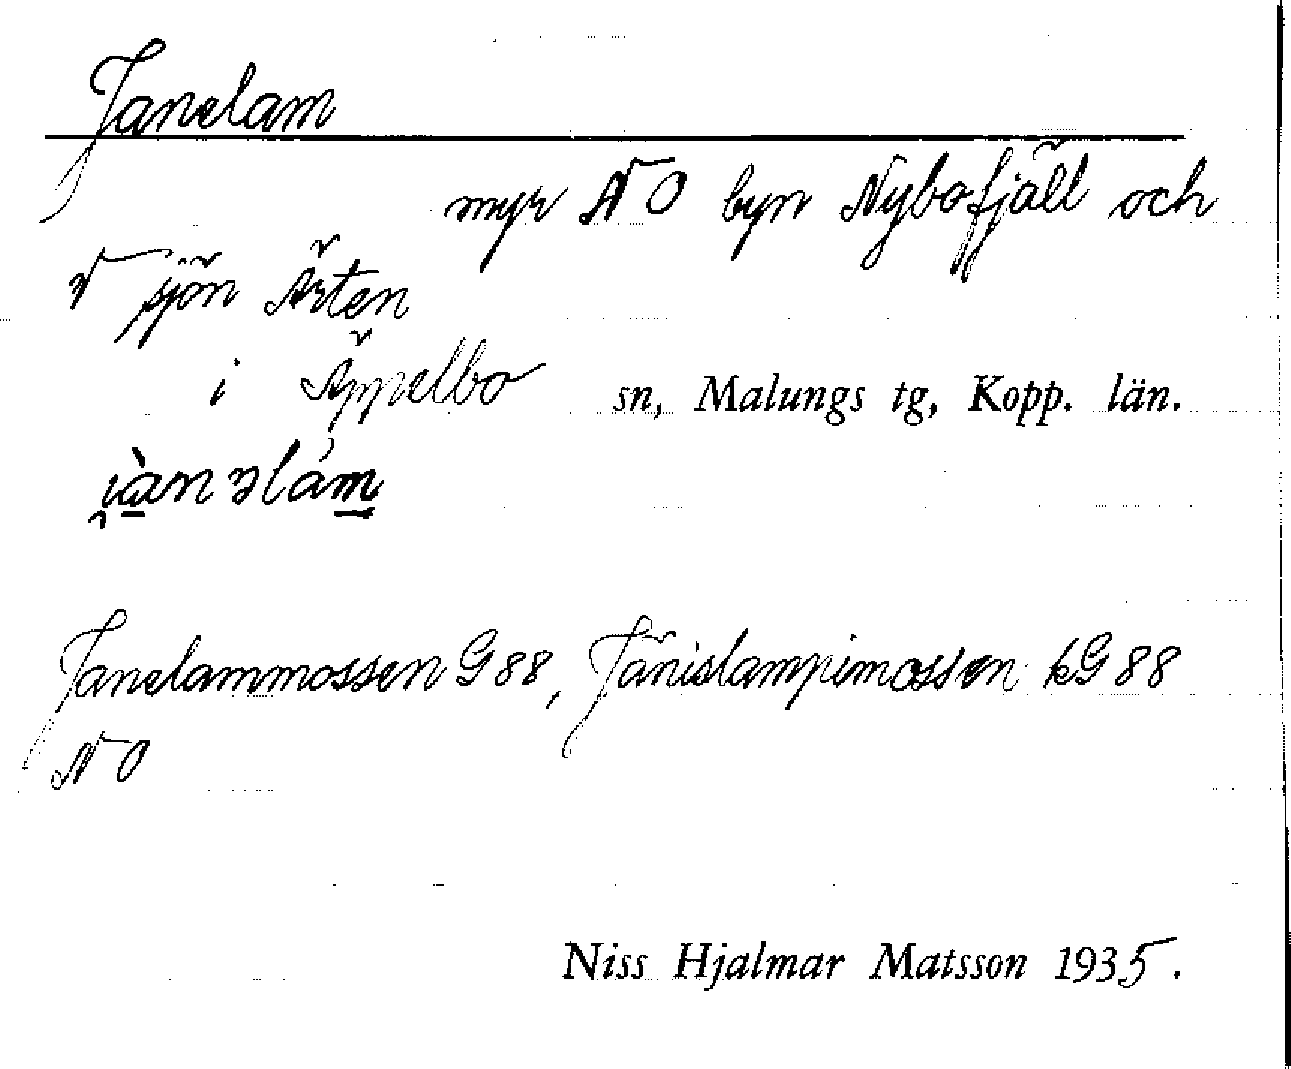 Janelam
myr NO byn Nybofjäll och
V sjön Ärten
i Äppelbo sn, Malungs tg, Kopp. län.
i̯àn əlám
Janelammossen G88, Jänislampimossen kG88
NO
Niss Hjalmar Matsson 1935.